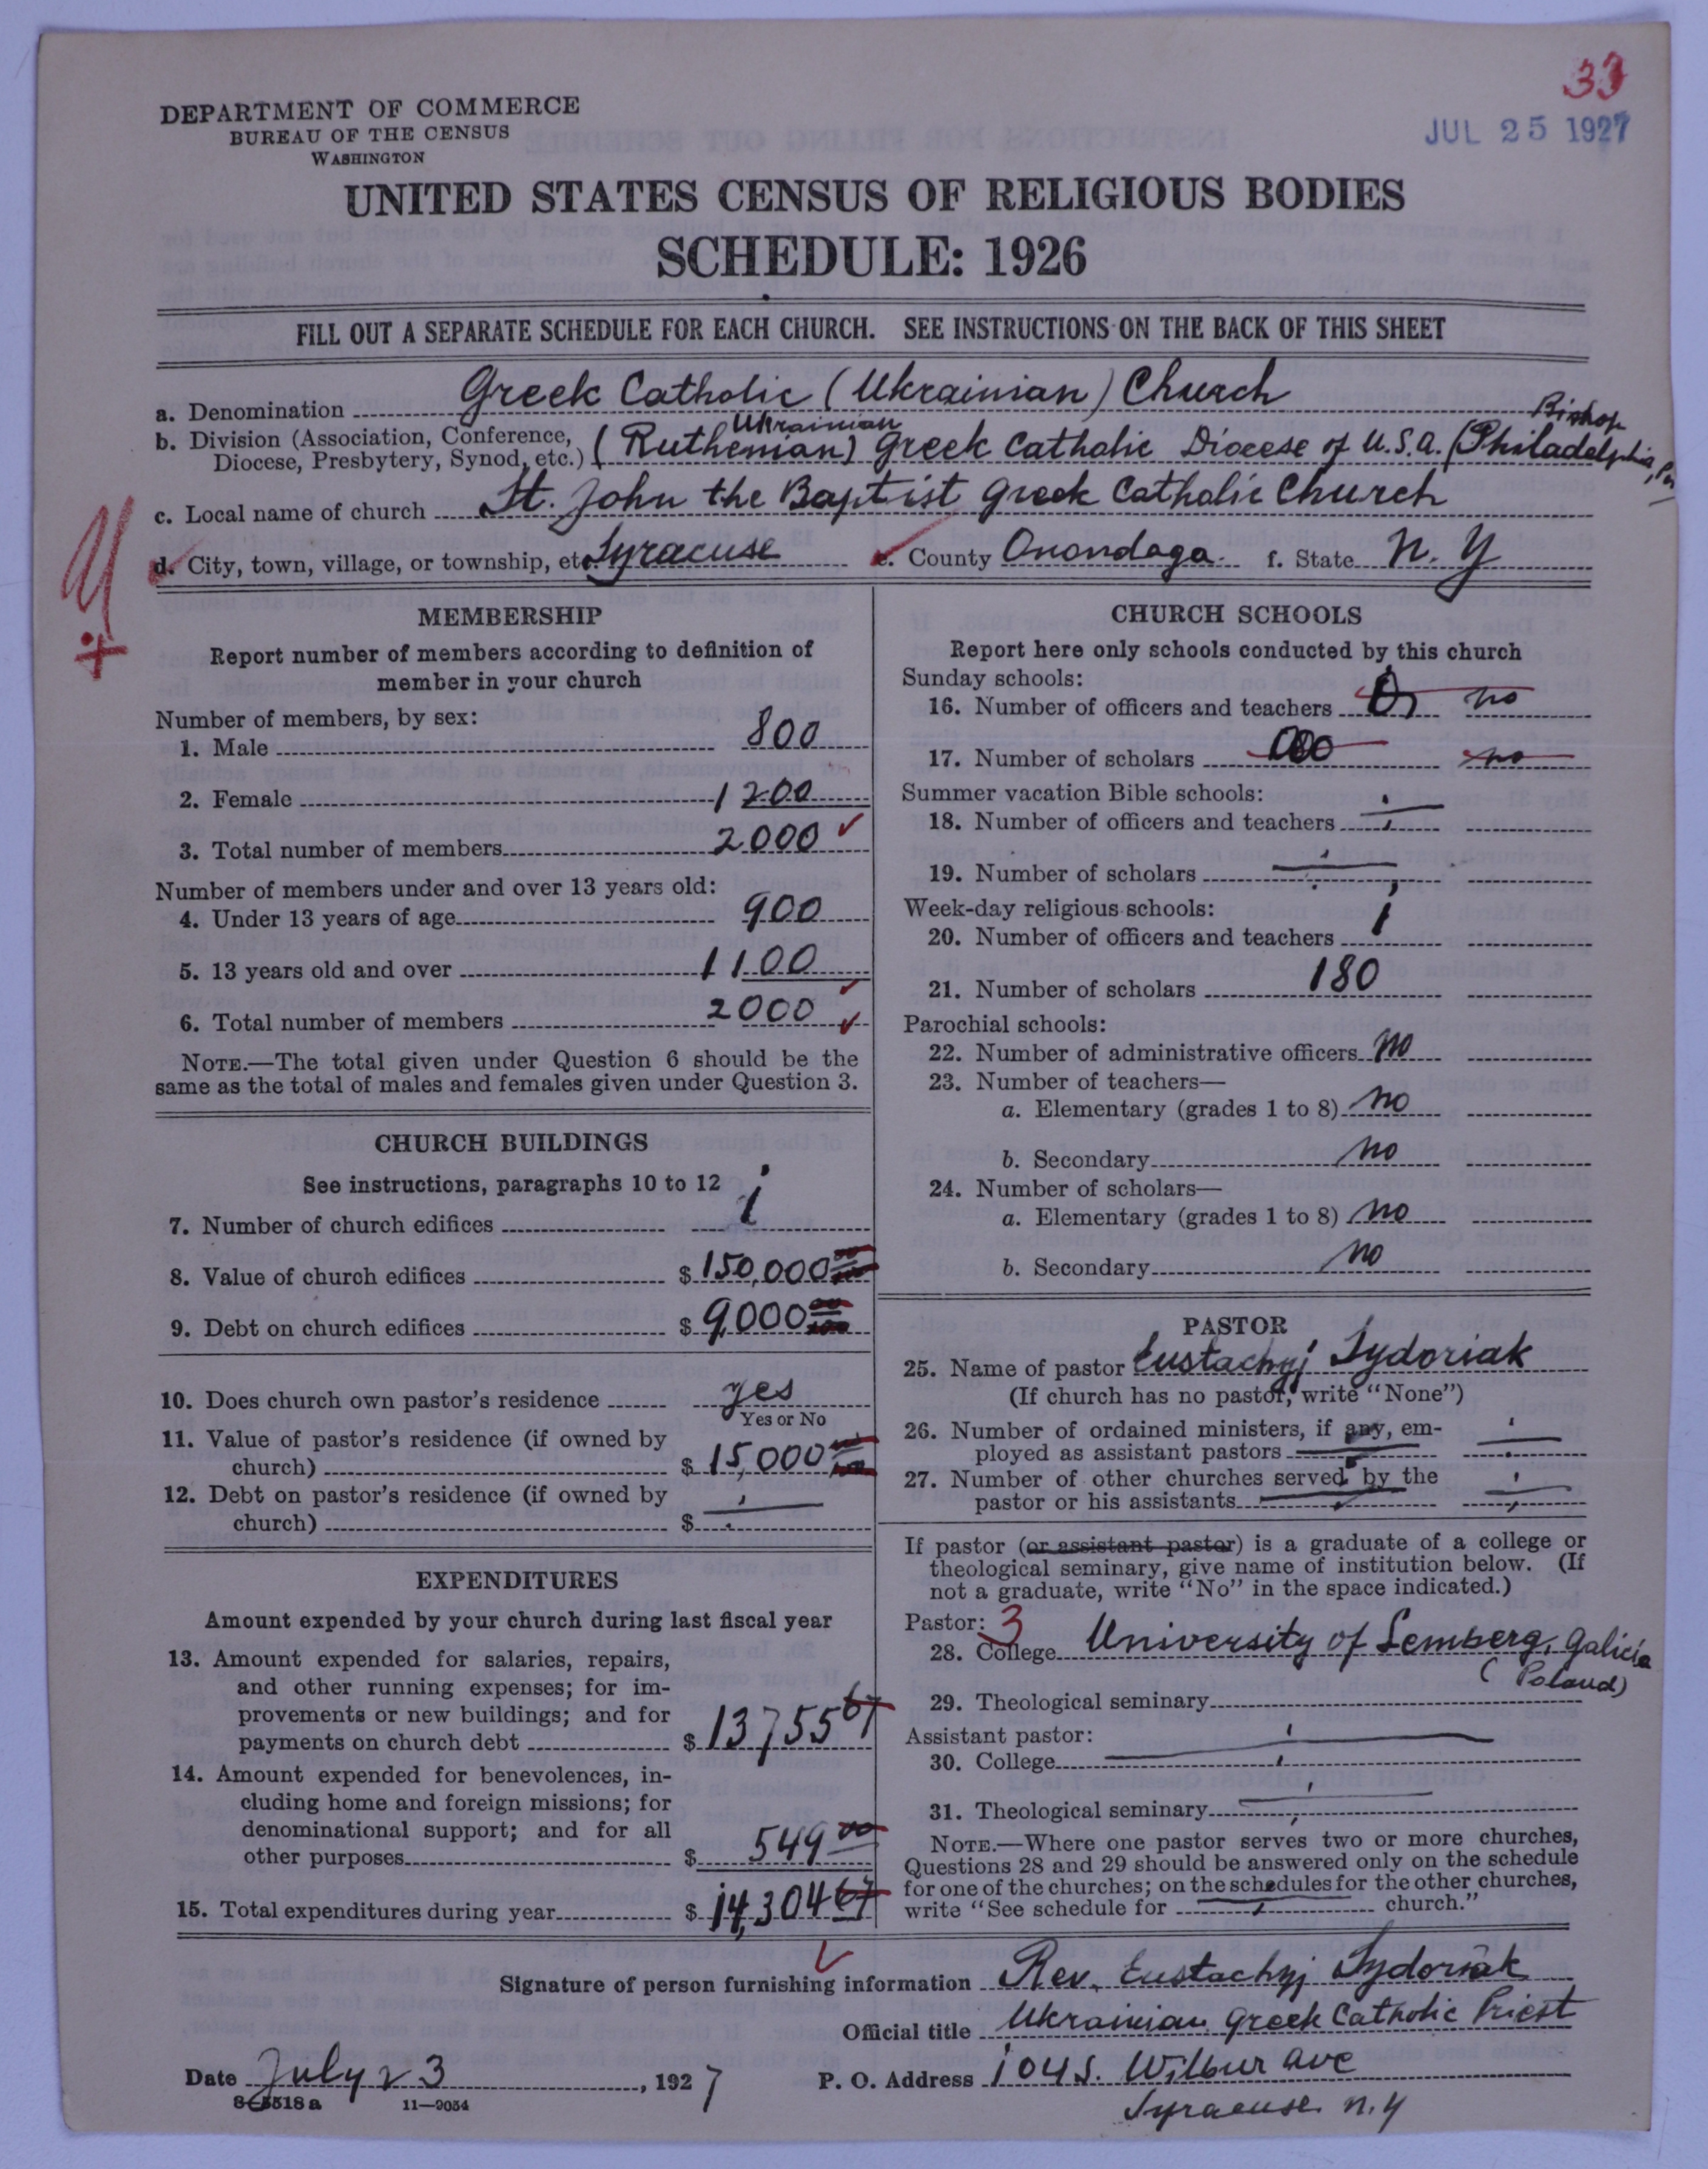 33
JUL 25 1927
DEPARTMENT OF COMMERCE
BUREAU OF THE CENSUS
WASHINGTON
UNITED STATES CENSUS OF RELIGIOUS BODIES
SCHEDULE: 1926
FILL OUT A SEPARATE SCHEDULE FOR EACH CHURCH. SEE INSTRUCTIONS ON THE BACK OF THIS SHEET
a. Denomination Greek Catholic (Ukrainian) Church
b. Division (Association, Conference, Diocese, Presbytery, Synod, etc.) (Ruthenian) Ukrainian Greek Catholic Diocese of U.S.A. (Bishop Philadelphia, Pa
c. Local name of church St. John the Baptist Greek Catholic Church
d. City, town, village, or township, etc. Syracuse e. County Onondaga f. State N. Y
MEMBERSHIP
Report number of members according to definition of
member in your church
Number of members, by sex:
1. Male 800
2. Female 1200
3. Total number of members 2000
Number of members under and over 13 years old:
4. Under 13 years of age 900
5. 13 years old and over 1100
6. Total number of members 2000
NOTE.—The total given under Question 6 should be the
same as the total of males and females given under Question 3.
CHURCH BUILDINGS
See instructions, paragraphs 10 to 12
7. Number of church edifices 1
8. Value of church edifices $ 150,000
9. Debt on church edifices $ 9,000
10. Does church own pastor's residence yes
Yes or No
11. Value of pastor's residence (if owned by
church) $ 15,000
12. Debt on pastor's residence (if owned by
church) $
EXPENDITURES
Amount expended by your church during last fiscal year
13. Amount expended for salaries, repairs,
and other running expenses; for im-
provements or new buildings; and for
payments on church debt $ 13,755 67
14. Amount expended for benevolences, in-
cluding home and foreign missions; for
denominational support; and for all
other purposes $ 549 00
15. Total expenditures during year $ 14,304 67
CHURCH SCHOOLS
Report here only schools conducted by this church
Sunday schools:
16. Number of officers and teachers no
17. Number of scholars no
Summer vacation Bible schools:
18. Number of officers and teachers
19. Number of scholars
Week-day religious schools:
20. Number of officers and teachers 1
21. Number of scholars 180
Parochial schools:
22. Number of administrative officers no
23. Number of teachers—
a. Elementary (grades 1 to 8) no
b. Secondary no
24. Number of scholars—
a. Elementary (grades 1 to 8) no
b. Secondary no
PASTOR
25. Name of pastor Eustachyj Sydoriak
(If church has no pastor, write "None")
26. Number of ordained ministers, if any, em-
ployed as assistant pastors
27. Number of other churches served by the
pastor or his assistants
If pastor (or assistant pastor) is a graduate of a college or
theological seminary, give name of institution below. (If
not a graduate, write "No" in the space indicated.)
Pastor: 3
28. College University of Lemberg, Galicia
(Poland)
29. Theological seminary
Assistant pastor:
30. College
31. Theological seminary
NOTE.—Where one pastor serves two or more churches,
Questions 28 and 29 should be answered only on the schedule
for one of the churches; on the schedules for the other churches,
write "See schedule for church."
Signature of person furnishing information Rev. Eustachyj Sydoriak
Official title Ukrainian Greek Catholic Priest
Date July 23, 1927 P. O. Address 104 S. Wilbur Ave
Syracuse N.Y
8-5518a 11—9054